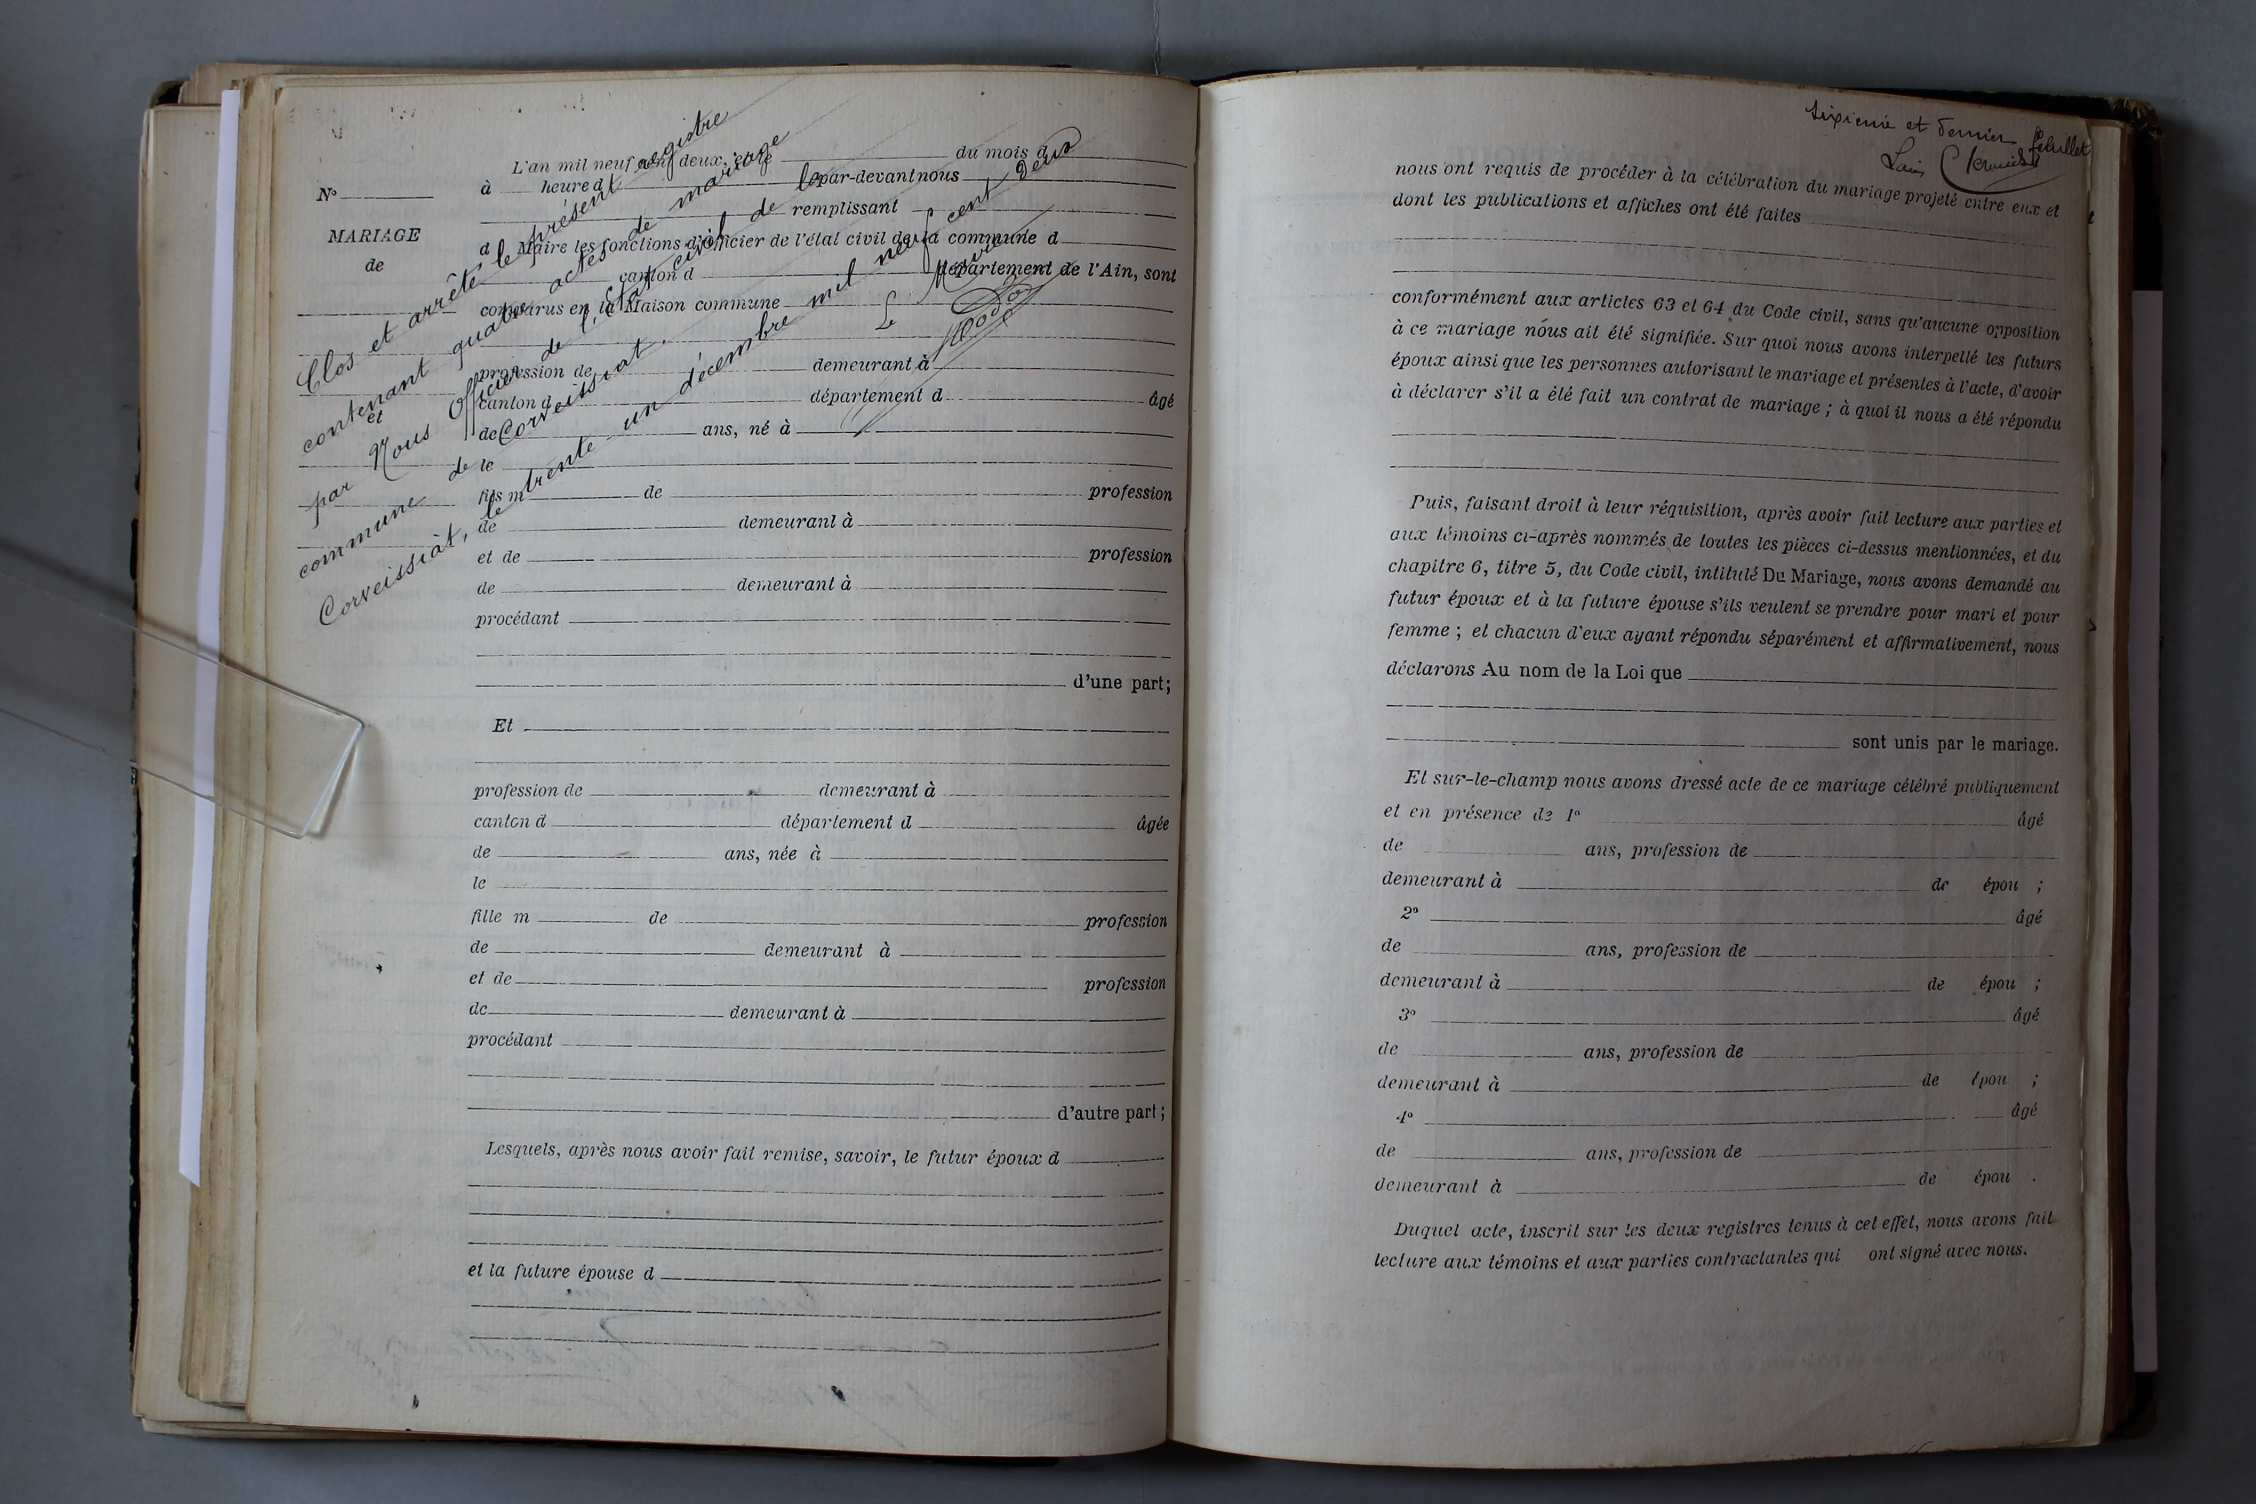 L'an mil neuf cent deux, et le du mois d
N° à heure d par-devant nous
remplissant
MARIAGE
de
d Maire les fonctions d'officier de l'état civil de la commune d
canton d département de l'Ain, sont
comparus en la Maison commune
profession de demeurant à
canton d département d âgé
et
de ans, né à
le
fils m de profession
de demeurant à
et de profession
de demeurant à
procédant
d'une part;
Et
profession de demeurant à
canton d département d âgée
de ans, née à
le
fille m de profession
de demeurant à
et de profession
de demeurant à
procédant
d'autre part;
Lesquels, après nous avoir fait remise, savoir, le futur époux d
et la future épouse d
Clos et arrêté le présent registre
contenant quatre actes de mariage
par Nous officier de l'État civil de la
commune de Corveissiat.
Corveissiat, le trente-un décembre mil neuf cent deux
Le Maire
sixième et dernier feuillet
nous ont requis de procéder à la célébration du mariage projeté entre eux et
dont les publications et affiches ont été faites
conformément aux articles 63 et 64 du Code civil, sans qu'aucune opposition
à ce mariage nous ait été signifiée. Sur quoi nous avons interpellé les futurs
époux ainsi que les personnes autorisant le mariage et présentes à l'acte, d'avoir
à déclarer s'il a été fait un contrat de mariage ; à quoi il nous a été répondu
Puis, faisant droit à leur réquisition, après avoir fait lecture aux parties et
aux témoins ci-après nommés de toutes les pièces ci-dessus mentionnées, et du
chapitre 6, titre 5, du Code civil, intitulé Du Mariage, nous avons demandé au
futur époux et à la future épouse s'ils veulent se prendre pour mari et pour
femme ; et chacun d'eux ayant répondu séparément et affirmativement, nous
déclarons Au nom de la Loi que
sont unis par le mariage.
Et sur-le-champ nous avons dressé acte de ce mariage célébré publiquement
et en présence de 1° âgé
de ans, profession de
demeurant à de épou ;
2° âgé
de ans, profession de
demeurant à de épou ;
3° âgé
de ans, profession de
demeurant à de épou ;
4° âgé
de ans, profession de
demeurant à de épou .
Duquel acte, inscrit sur les deux registres tenus à cet effet, nous avons fait
lecture aux témoins et aux parties contractantes qui ont signé avec nous.